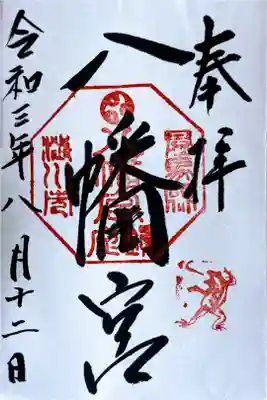 奉拝
八幡宮
令和三年八月十二日